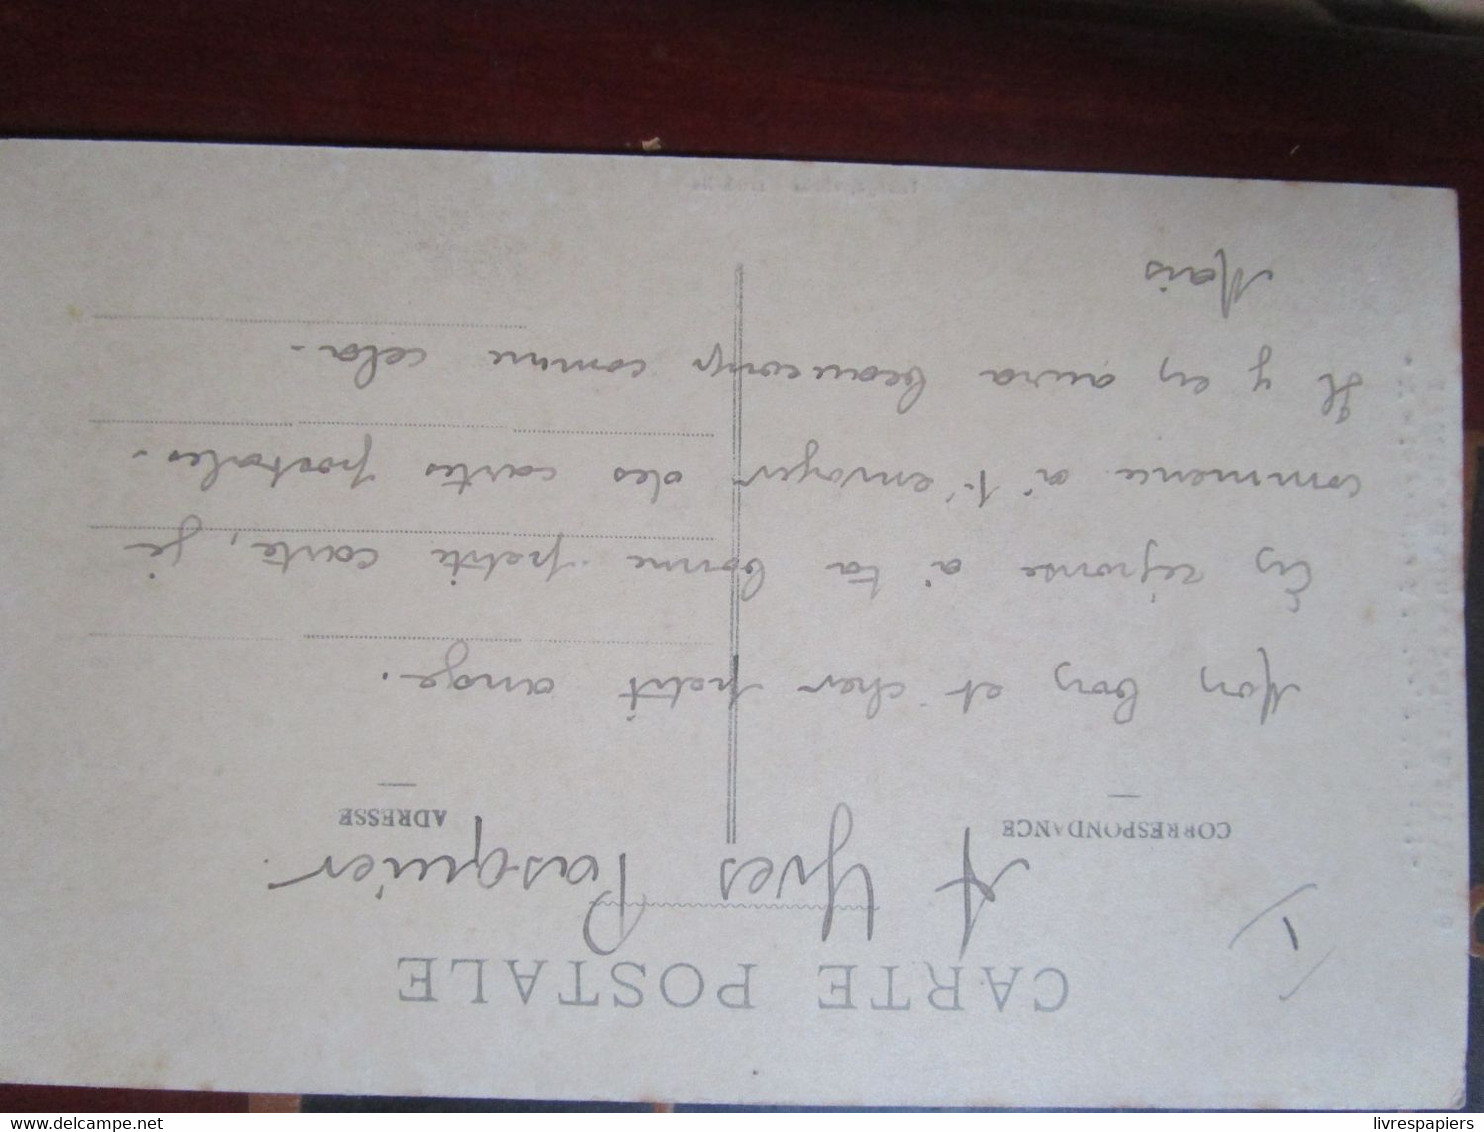 CARTE POSTALE
1)
A Yves Pasquier
CORRESPONDANCE
ADRESSE
Mon bon et cher petit ange.
En réponse à ta bonne petite carte, je
commence à t'envoyer des cartes postales.
Il y en aura beaucoup comme cela.
Mais
www.delcampe.net
livrespapiers